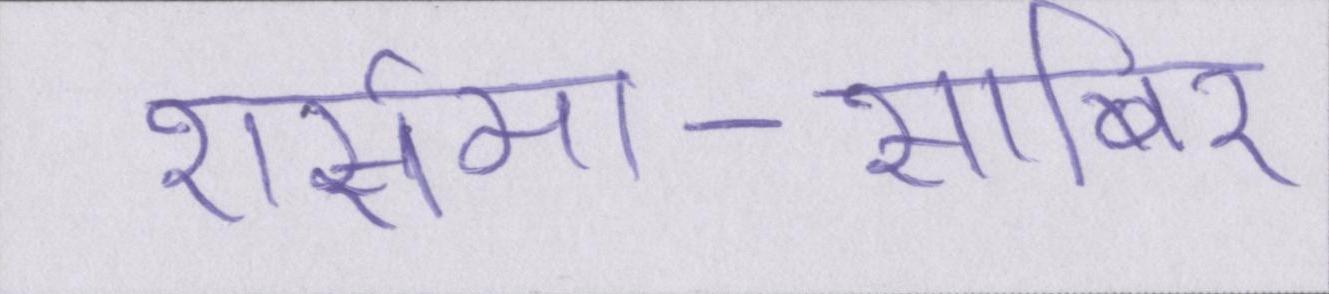 शर्समा-साबिर